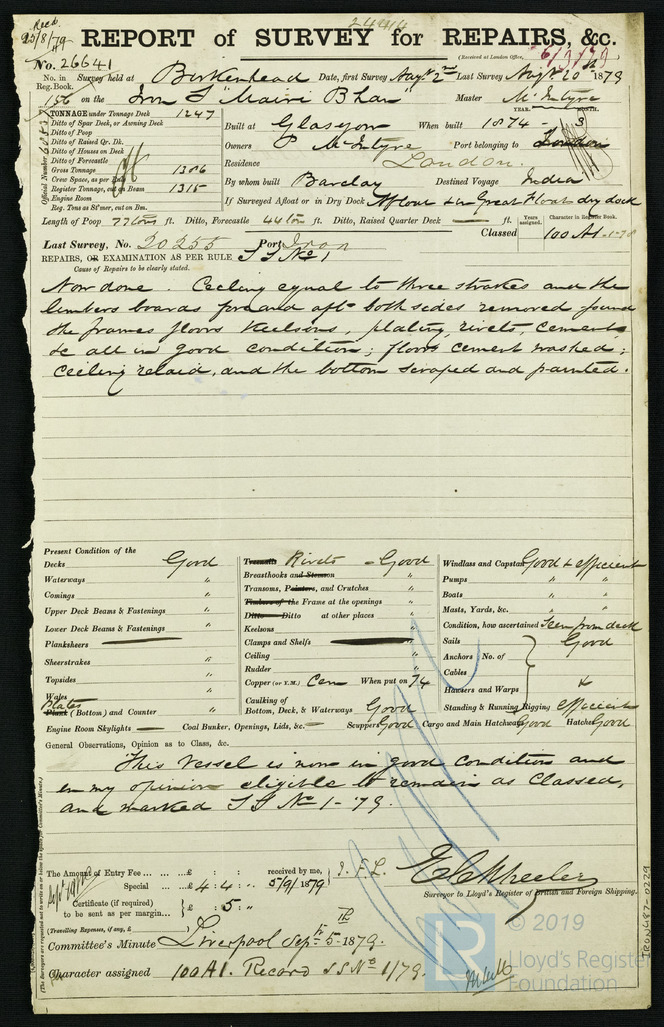 Recd. 25/8/79
24446
REPORT of SURVEY for REPAIRS, &c.
No. 26641
(Received at London Office, 6/9/79
No. in Reg. Book. Survey held at Birkenhead Date, first Survey Augt. 2nd Last Survey Augt 20th 1879
156 on the Iron S "Mairi Bhan Master McIntyre
TONNAGE under Tonnage Deck 1247
Ditto of Spar Deck, or Awning Deck
Ditto of Poop
Ditto of Raised Qr. Dk.
Ditto of Houses on Deck
Ditto of Forecastle
Gross Tonnage 1386
Crew Space, as per Rule
Register Tonnage, cut on Beam 1315
Engine Room
Reg. Tons as St'mer, cut on Bm.
Official Number
YEAR. MONTH.
Built at Glasgow When built 1874 - 3
Owners P McIntyre Port belonging to London
Residence London.
By whom built Barclay Destined Voyage India
If Surveyed Afloat or in Dry Dock Afloat & in Great Float dry dock
Length of Poop 77 tons ft. Ditto, Forecastle 44 ton ft. Ditto, Raised Quarter Deck — ft.
Years assigned. Character in Register Book.
Classed 100 A1. 1-78
Last Survey, No. 20255 Port Iron
REPAIRS, OR EXAMINATION AS PER RULE S S No 1
Cause of Repairs to be clearly stated.
Now done. Ceiling equal to three strakes and the
limbers boards for and aft both sides removed found
the frames floors Keelsons, plating, rivets, cement
&c all in good condition; floors cement washed;
ceiling relaid, and the bottom scraped and painted.
Present Condition of the
Decks Good
Waterways "
Comings "
Upper Deck Beams & Fastenings "
Lower Deck Beams & Fastenings "
Planksheers
Sheerstrakes "
Topsides "
Wales "
Plates
Plank (Bottom) and Counter "
Engine Room Skylights — Coal Bunker, Openings, Lids, &c. — Scuppers Good Cargo and Main Hatchway Good Hatches Good
Treenails Rivets - Good
Breasthooks and Stemson "
Transoms, Pointers, and Crutches "
Timbers of the Frame at the openings "
Ditto Ditto at other places "
Keelsons "
Clamps and Shelfs
Ceiling "
Rudder "
Copper (or Y.M.) Cem When put on 74
Caulking of Bottom, Deck, & Waterways Good
Windlass and Capstan Good & efficient
Pumps " "
Boats " "
Masts, Yards, &c. " "
Condition, how ascertained Seen from deck
Sails Good
Anchors No. of
Cables
Hawsers and Warps &
Standing & Running Rigging efficient
General Observations, Opinion as to Class, &c.
This Vessel is now in good condition and
in my opinion eligible to remain as Classed,
and marked S S No 1 - 79.
The Amount of Entry Fee ... ...£ : : received by me,
Special ... ...£ 4 : 4 : " 5/9/1879
Certificate (if required) to be sent as per margin... £ : 5 : "
(Travelling Expenses, if any, £
E C Wheeler
Surveyor to Lloyd's Register of British and Foreign Shipping.
Committee's Minute Liverpool Sep. 5th 1879.
Character assigned 100 A1. Record S S No 1/79.
IRON487-0229
© 2019
LR
Lloyd's Register
Foundation